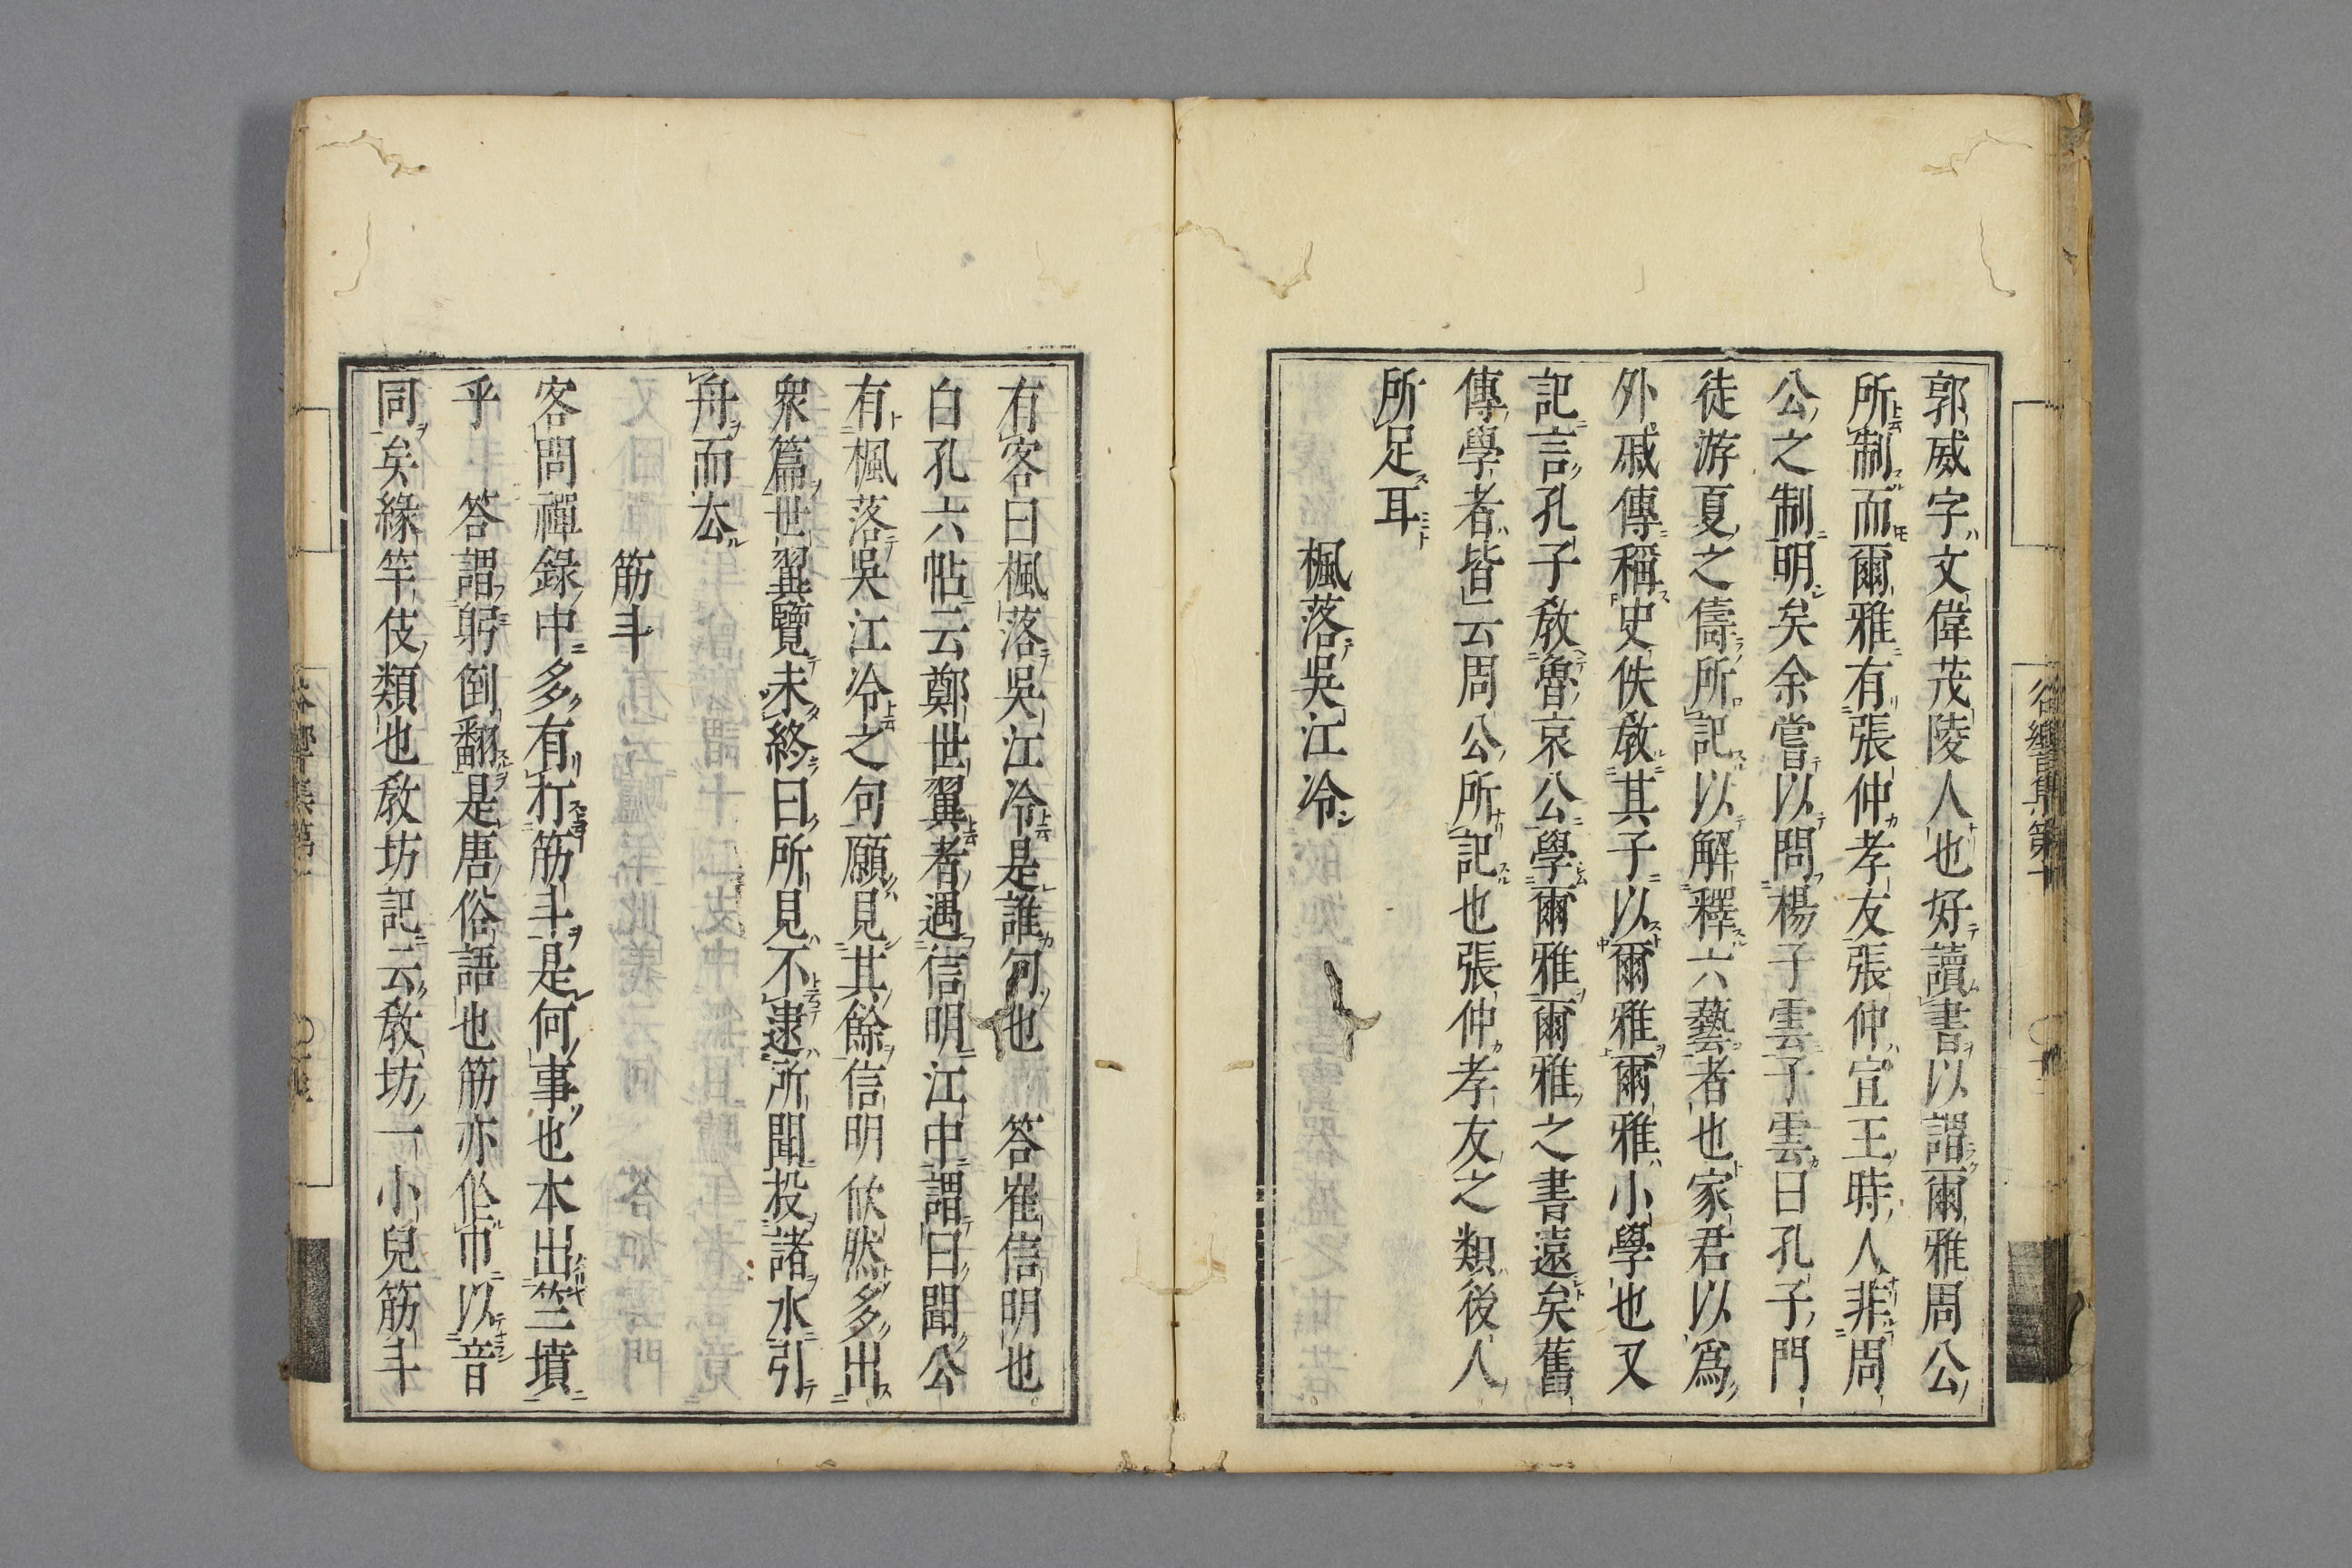 郭威字文偉茂陵人也好讀書以謂爾雅周公
所制而爾雅有張仲孝友張仲宣王時人非周
公之制明矣余嘗以問楊子雲子雲曰孔子門
徒游夏之儔所記以解釋六藝者也家君以爲
外戚傳稱史佚敎其子以爾雅爾雅小學也又
記言孔子敎魯哀公學爾雅爾雅之書遠矣舊
傳學者皆云周公所記也張仲孝友之類後人
所足耳
楓落吳江冷
有客曰楓落吳江冷是誰句也　答崔信明也
白孔六帖云鄭世翼者遇信明江中謂曰聞公
有楓落吳江冷之句願見其餘信明欣然多出
衆篇世翼覽未終曰所見不逮所聞投諸水引
舟而去
筋斗
客問禪錄中多有打筋斗是何事也本出竺墳
乎　答謂躬倒翻是唐俗語也筋亦作巾以音
同矣緣竿伎類也敎坊記云敎坊一小兒筋斗
谷響集第